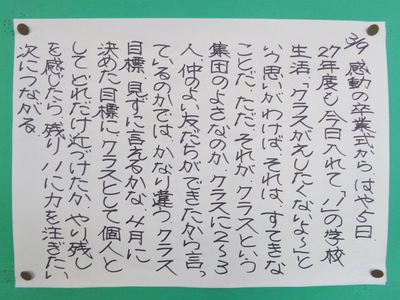 3/9 感動の卒業式から、はや5日。
27年度も、今日入れて「11」の学校
生活。「クラスがえしたくないよ〜」と
いう思いがわけば、それは、すてきな
ことだ。ただ、それが、クラスという
集団のよさなのか、クラスに2〜3
人、仲のよい友だちができたから言っ
ているのかでは、かなり違う。クラス
目標、見ずに言えるかな。4月に
決めた目標に、クラスとして、個人と
して、どれだけ近づけたか、やり残し
を感じたら、残り11に力を注ぎたい。
次につながる。